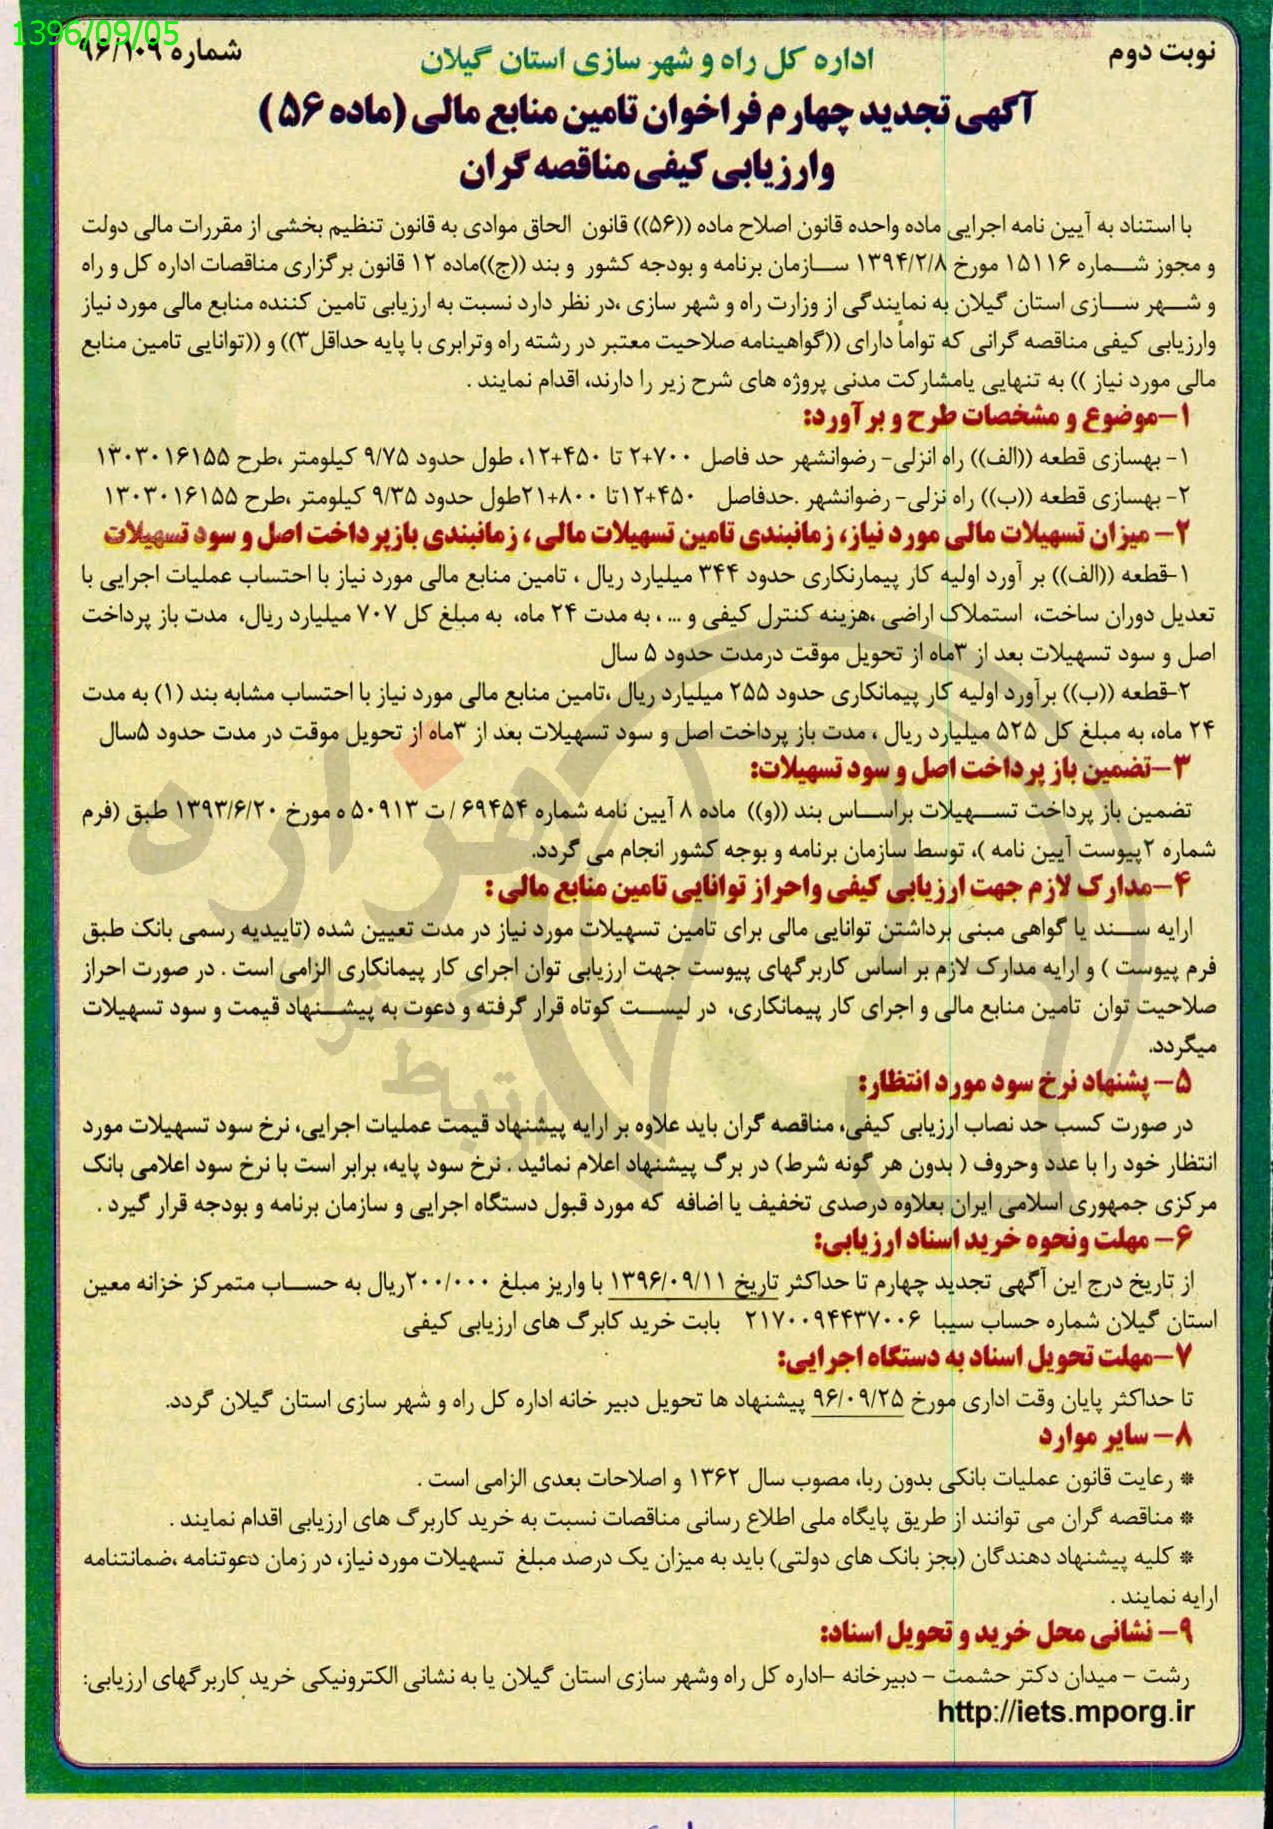 1396/09/05
نوبت دوم
شماره ۹۶/۱۰۹
اداره کل راه و شهر سازی استان گیلان
آگهی تجدید چهارم فراخوان تامین منابع مالی (ماده ۵۶ )
وارزیابی کیفی مناقصه گران
با استناد به آیین نامه اجرایی ماده واحده قانون اصلاح ماده ((۵۶)) قانون الحاق موادی به قانون تنظیم بخشی از مقررات مالی دولت
و مجوز شماره ۱۵۱۱۶ مورخ ۱۳۹۴/۲/۸ سازمان برنامه و بودجه کشور و بند ((ج))ماده ۱۲ قانون برگزاری مناقصات اداره کل و راه
و شهر سازی استان گیلان به نمایندگی از وزارت راه و شهر سازی ،در نظر دارد نسبت به ارزیابی تامین کننده منابع مالی مورد نیاز
وارزیابی کیفی مناقصه گرانی که تواماً دارای ((گواهینامه صلاحیت معتبر در رشته راه وترابری با پایه حداقل۳)) و ((توانایی تامین منابع
مالی مورد نیاز )) به تنهایی یامشارکت مدنی پروژه های شرح زیر را دارند، اقدام نمایند .
۱-موضوع و مشخصات طرح و برآورد:
۱- بهسازی قطعه ((الف)) راه انزلی- رضوانشهر حد فاصل ۲+۷۰۰ تا ۱۲+۴۵۰، طول حدود ۹/۷۵ کیلومتر ،طرح ۱۳۰۳۰۱۶۱۵۵
۲- بهسازی قطعه ((ب)) راه نزلی- رضوانشهر .حدفاصل ۱۲+۴۵۰تا ۲۱+۸۰۰طول حدود ۹/۳۵ کیلومتر ،طرح ۱۳۰۳۰۱۶۱۵۵
۲- میزان تسهیلات مالی مورد نیاز، زمانبندی تامین تسهیلات مالی ، زمانبندی بازپرداخت اصل و سود تسهیلات
۱-قطعه ((الف)) بر آورد اولیه کار پیمارنکاری حدود ۳۴۴ میلیارد ریال ، تامین منابع مالی مورد نیاز با احتساب عملیات اجرایی با
تعدیل دوران ساخت، استملاک اراضی ،هزینه کنترل کیفی و ... ، به مدت ۲۴ ماه، به مبلغ کل ۷۰۷ میلیارد ریال، مدت باز پرداخت
اصل و سود تسهیلات بعد از ۳ماه از تحویل موقت درمدت حدود ۵ سال
۲-قطعه ((ب)) برآورد اولیه کار پیمانکاری حدود ۲۵۵ میلیارد ریال ،تامین منابع مالی مورد نیاز با احتساب مشابه بند (۱) به مدت
۲۴ ماه، به مبلغ کل ۵۲۵ میلیارد ریال ، مدت باز پرداخت اصل و سود تسهیلات بعد از ۳ماه از تحویل موقت در مدت حدود ۵سال
۳-تضمین باز پرداخت اصل و سود تسهیلات:
تضمین باز پرداخت تسهیلات براساس بند ((و)) ماده ۸ آیین نامه شماره ۶۹۴۵۴ / ت ۵۰۹۱۳ ه مورخ ۱۳۹۳/۶/۲۰ طبق (فرم
شماره ۲پیوست آیین نامه )، توسط سازمان برنامه و بوجه کشور انجام می گردد.
۴-مدارک لازم جهت ارزیابی کیفی واحراز توانایی تامین منابع مالی :
ارایه سند یا گواهی مبنی برداشتن توانایی مالی برای تامین تسهیلات مورد نیاز در مدت تعیین شده (تاییدیه رسمی بانک طبق
فرم پیوست ) و ارایه مدارک لازم بر اساس کاربرگهای پیوست جهت ارزیابی توان اجرای کار پیمانکاری الزامی است . در صورت احراز
صلاحیت توان تامین منابع مالی و اجرای کار پیمانکاری، در لیست کوتاه قرار گرفته و دعوت به پیشنهاد قیمت و سود تسهیلات
میگردد.
۵- پشنهاد نرخ سود مورد انتظار:
در صورت کسب حد نصاب ارزیابی کیفی، مناقصه گران باید علاوه بر ارایه پیشنهاد قیمت عملیات اجرایی، نرخ سود تسهیلات مورد
انتظار خود را با عدد وحروف ( بدون هر گونه شرط) در برگ پیشنهاد اعلام نمائید . نرخ سود پایه، برابر است با نرخ سود اعلامی بانک
مرکزی جمهوری اسلامی ایران بعلاوه درصدی تخفیف یا اضافه که مورد قبول دستگاه اجرایی و سازمان برنامه و بودجه قرار گیرد .
۶- مهلت ونحوه خرید اسناد ارزیابی:
از تاریخ درج این آگهی تجدید چهارم تا حداکثر تاریخ ۱۳۹۶/۰۹/۱۱ با واریز مبلغ ۲۰۰/۰۰۰ریال به حساب متمرکز خزانه معین
استان گیلان شماره حساب سیبا ۲۱۷۰۰۹۴۴۳۷۰۰۶ بابت خرید کابرگ های ارزیابی کیفی
۷-مهلت تحویل اسناد به دستگاه اجرایی:
تا حداکثر پایان وقت اداری مورخ ۹۶/۰۹/۲۵ پیشنهاد ها تحویل دبیر خانه اداره کل راه و شهر سازی استان گیلان گردد.
۸- سایر موارد
* رعایت قانون عملیات بانکی بدون ربا، مصوب سال ۱۳۶۲ و اصلاحات بعدی الزامی است .
* مناقصه گران می توانند از طریق پایگاه ملی اطلاع رسانی مناقصات نسبت به خرید کاربرگ های ارزیابی اقدام نمایند .
* کلیه پیشنهاد دهندگان (بجز بانک های دولتی) باید به میزان یک درصد مبلغ تسهیلات مورد نیاز، در زمان دعوتنامه ،ضمانتنامه
ارایه نمایند .
۹- نشانی محل خرید و تحویل اسناد:
رشت - میدان دکتر حشمت - دبیرخانه -اداره کل راه وشهر سازی استان گیلان یا به نشانی الکترونیکی خرید کاربرگهای ارزیابی:
http://iets.mporg.ir
هزاره
ارتباط